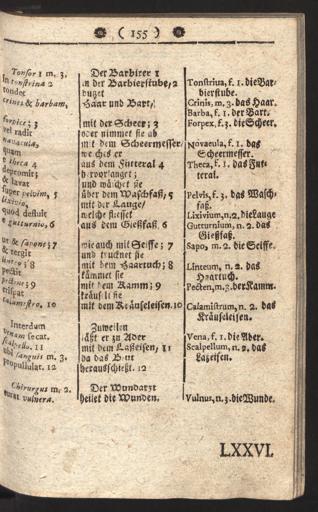 ( 155 )
Tonsor 1 m. 3.
in tonstrina 2
tondet
crines & barbam,
forbice; 3
vel radit
novacula,
quam
è theca 4
depromit;
& lavat
super pelvim, 5
lixivio,
quod defluit
è gutturnio, 6
ut & sapone; 7
& tergit
linteo; 8
pectit
pectine; 9
crispat
calamistro. 10
Interdum
venam secat.
scalpello. 11
ubi sanguis m. 3.
propullulat. 12
Chirurgus m. 2.
curat vulnera.
Der Barbirer 1
in der Barbierstube, 2
butzet
Haar und Bart,
mit der Scheer; 3
oder nimmet sie ab
mit dem Scheermesser,
welches er
aus dem Futteral 4
hervorlanget;
und wäschet sie
über dem Waschfaß, 5
mit der Lauge,
welche fliesset
aus dem Gießfaß, 6
wie auch mit Seiffe; 7
und trucknet sie
mit dem Haartuch; 8
kämmet sie
mit dem Kamm; 9
kräuselt sie
mit dem Kräuseleisen. 10
Zuweilen
läßt er zu Ader
mit dem Laßeisen, 11
da das Blut
herausschießt. 12
Der Wundarzt
heilet die Wunden.
Tonstrina, f. 1. die Bar-
bierstube.
Crinis, m. 3. das Haar.
Barba, f. 1. der Bart.
Forpex, f. 3. die Scheer.
Novacula, f. 1. das
Scheermesser.
Theca, f. 1. das Fut-
teral.
Pelvis, f. 3. das Wasch-
faß.
Lixivium, n. 2. die Lauge
Gutturnium, n. 2. das
Gießfaß.
Sapo, m. 3. die Seiffe.
Linteum, n. 2. das
Haartuch.
Pecten, m. 3. der Kamm.
Calamistrum, n. 2. das
Kräuseleisen.
Vena, f. 1. die Ader.
Scalpellum, n. 2. das
Laßeisen.
Vulnus, n. 3. die Wunde.
LXXVI.